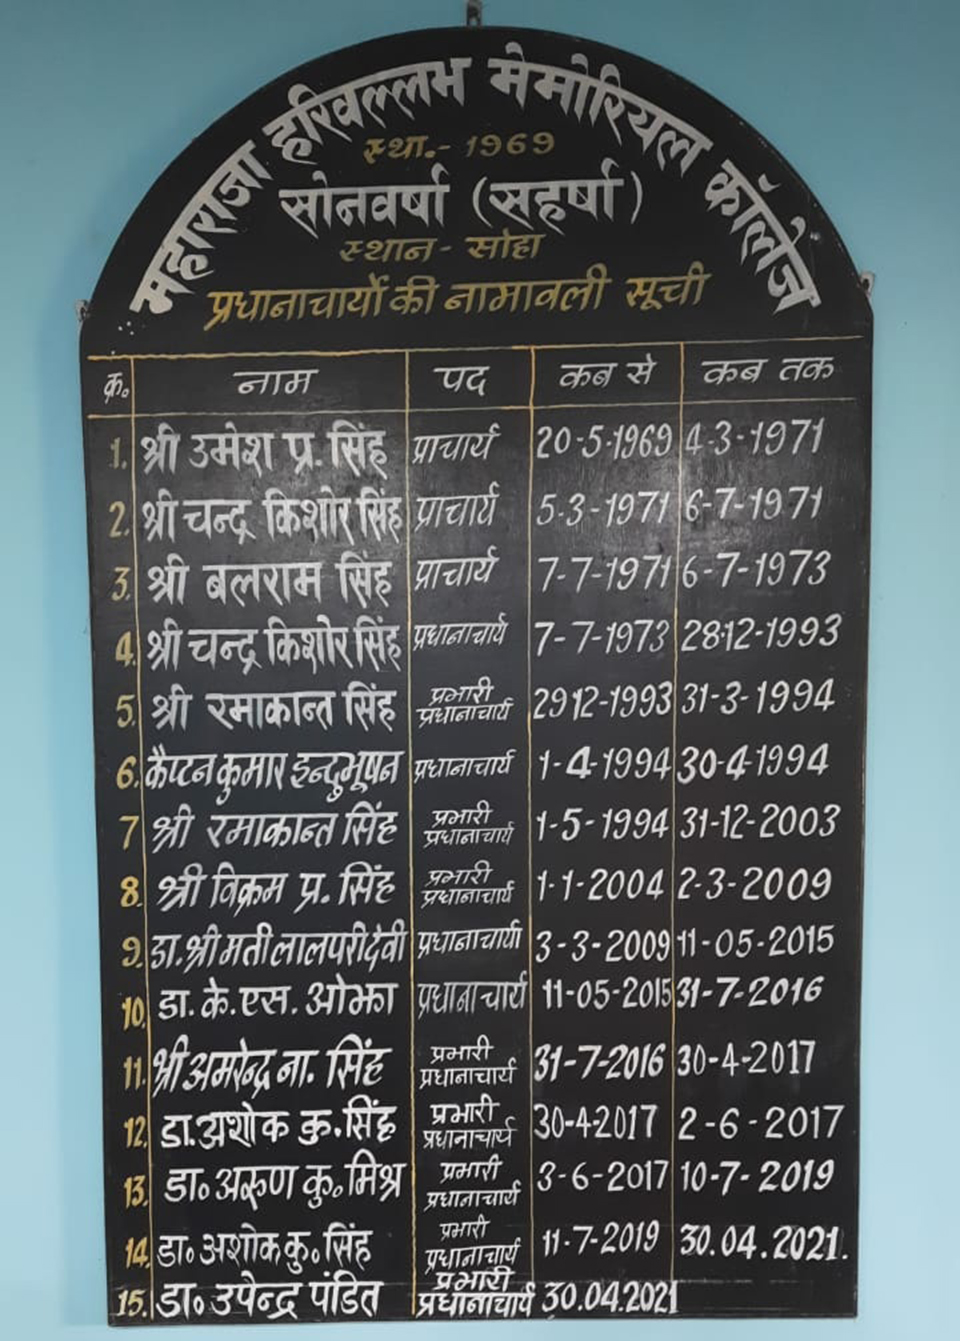 महाराजा हरिवल्लभ मेमोरियल कॉलेज
स्था.- 1969
सोनवर्षा (सहर्षा)
स्थान - सोहा
प्रधानाचार्यो की नामावली सूची
क्र० नाम पद कब से कब तक
1. श्री उमेश प्र. सिंह प्राचार्य 20-5-1969 4-3-1971
2. श्री चन्द्र किशोर सिंह प्राचार्य 5-3-1971 6-7-1971
3. श्री बलराम सिंह प्राचार्य 7-7-1971 6-7-1973
4. श्री चन्द्र किशोर सिंह प्रधानाचार्य 7-7-1973 28-12-1993
5. श्री रमाकान्त सिंह प्रभारी प्रधानाचार्य 29 12-1993 31-3-1994
6. कैप्टन कुमार इन्दुभूषन प्रधानाचार्य 1-4-1994 30-4-1994
7 श्री रमाकान्त सिंह प्रभारी प्रधानाचार्य 1-5-1994 31-12-2003
8. श्री विक्रम प्र. सिंह प्रभारी प्रधानाचार्य 1-1-2004 2-3-2009
9. डा. श्रीमती लालपरी देवी प्रधानाचार्या 3-3-2009 11-05-2015
10. डा. के. एस. ओझा प्रधानाचार्य 11-05-2015 31-7-2016
11. श्री अमरेन्द्र ना. सिंह प्रभारी प्रधानाचार्य 31-7-2016 30-4-2017
12. डा. अशोक कु. सिंह प्रभारी प्रधानाचार्य 30-4-2017 2-6-2017
13. डा० अरुण कु० मिश्र प्रभारी प्रधानाचार्य 3-6-2017 10-7-2019
14. डा० अशोक कु० सिंह प्रभारी प्रधानाचार्य 11-7-2019 30.04.2021.
15. डा० उपेन्द्र पंडित प्रभारी प्रधानाचार्य 30.04.2021